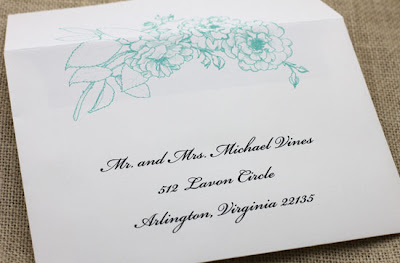 Mr. and Mrs. Michael Vines
512 Lavon Circle
Arlington, Virginia 22135